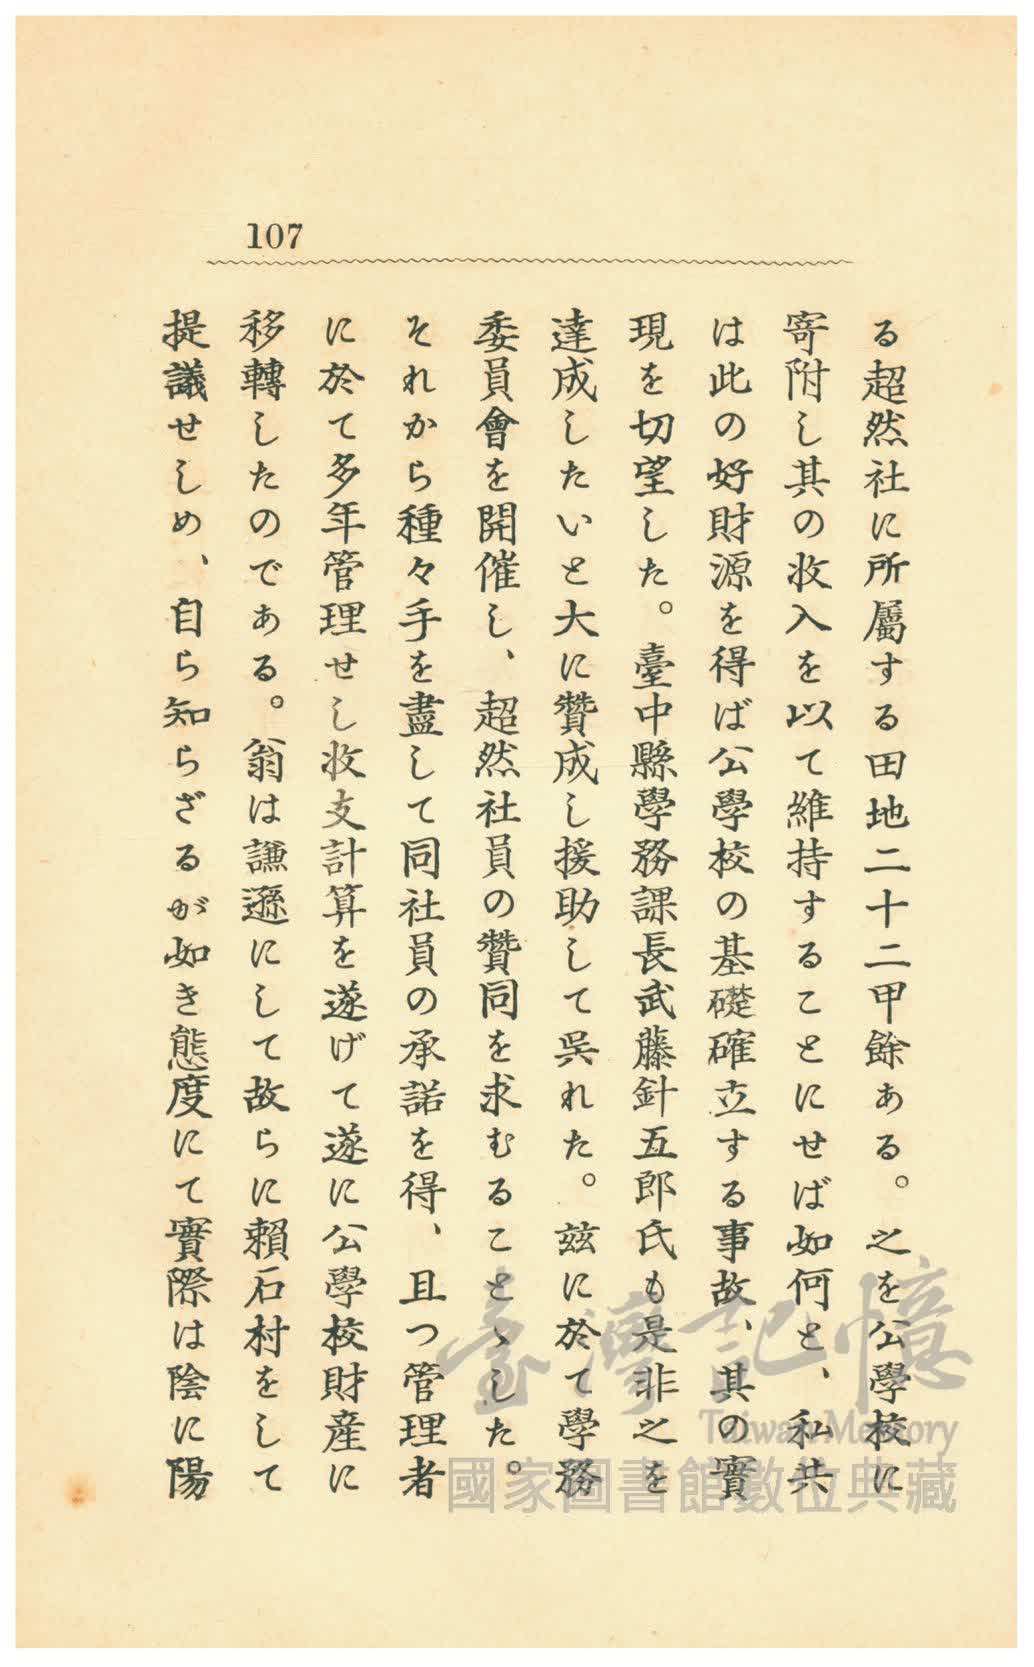 107
る超然社に所屬する田地二十二甲餘ある。之を公學校に
寄附し其の收入を以て維持することにせば如何と、私共
は此の好財源を得ば公學校の基礎確立する事故、其の實
現を切望した。臺中縣學務課長武藤針五郎氏も是非之を
達成したいと大に贊成し援助して呉れた。茲に於て學務
委員會を開催し、超然社員の贊同を求むることゝした。
それから種々手を盡して同社員の承諾を得、且つ管理者
に於て多年管理せし收支計算を遂げて遂に公學校財産に
移轉したのである。翁は謙遜にして故らに賴石村をして
提議せしめ、自ら知らざるが如き態度にて實際は陰に陽
臺灣記憶
Taiwan Memory
國家圖書館數位典藏